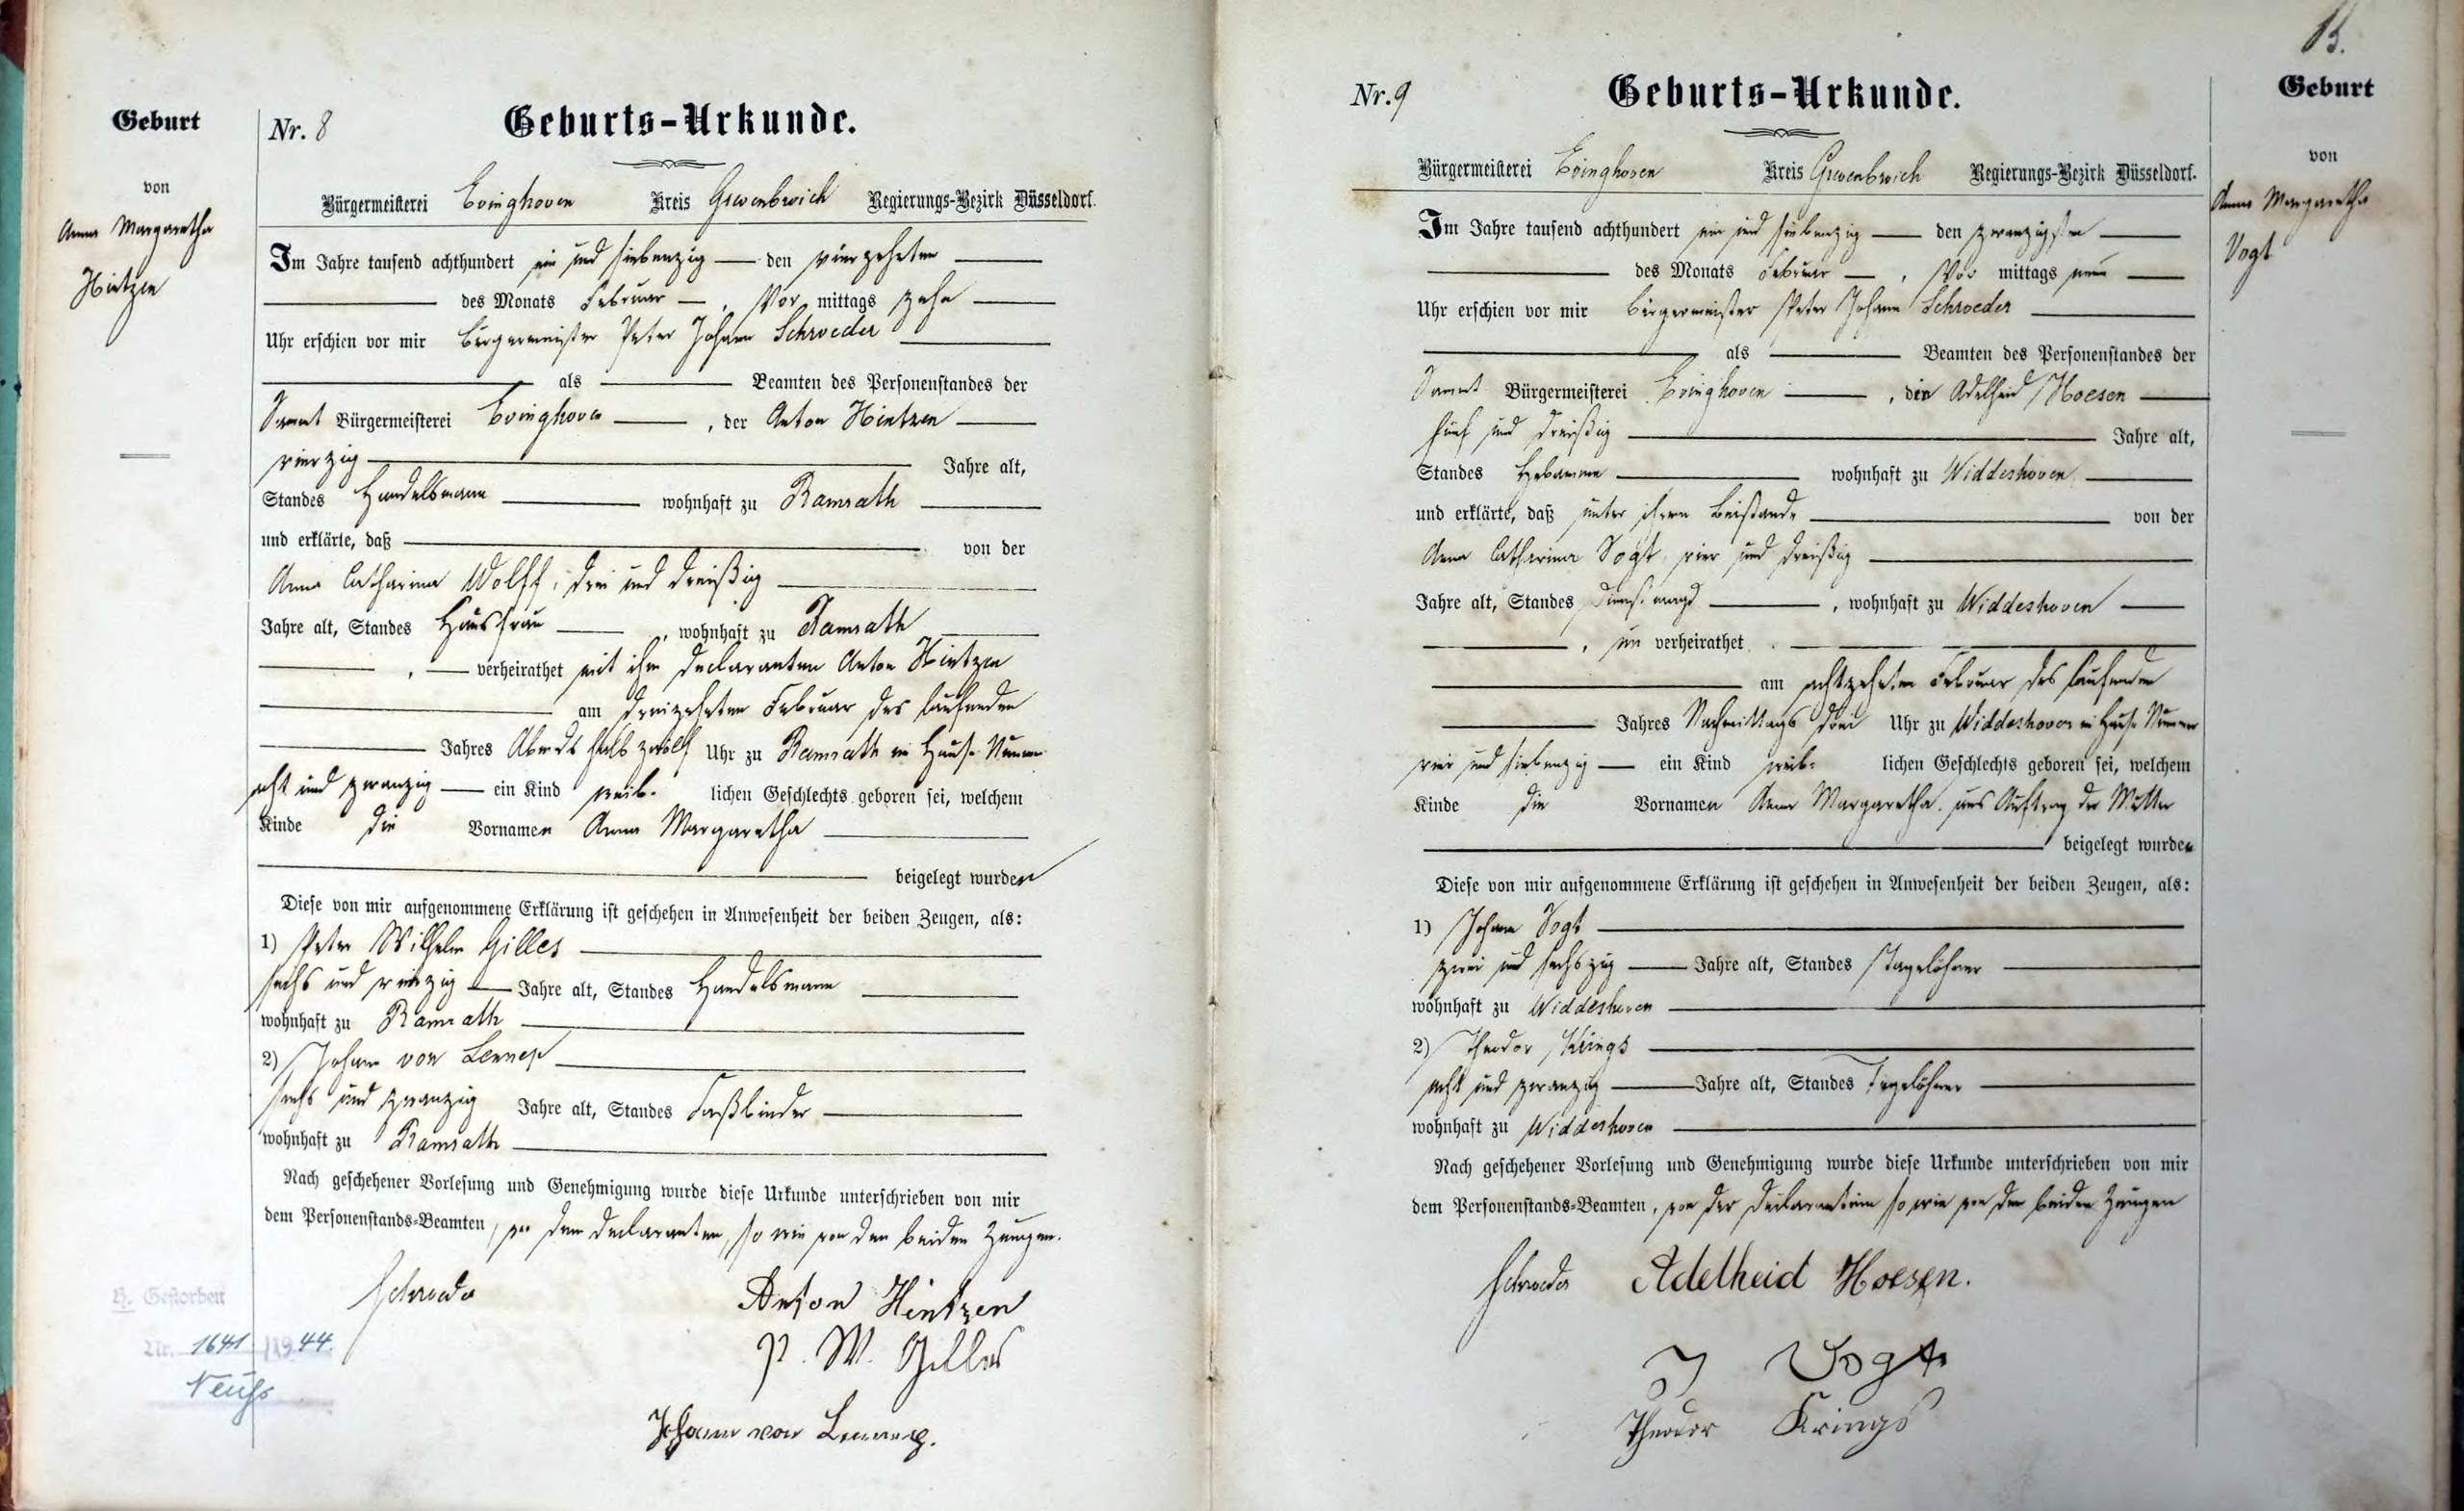 Geburt
von
Anna Margaretha
Hintzen
Nr. 8
Geburts-Urkunde.
Bürgermeisterei Evinghoven Kreis Grevenbroich Regierungs-Bezirk Düsseldorf.
Im Jahre tausend achthundert ein und siebenzig den vierzehnten
des Monats Februar, Vormittags zehn
Uhr erschien vor mir Bürgermeister Peter Johann Schroeder
als Beamten des Personenstandes der
Sammt Bürgermeisterei Evinghoven, der Anton Hintzen
vierzig Jahre alt,
Standes Handelsmann wohnhaft zu Ramrath
und erklärte, daß von der
Anna Catharina Wolff, drei und dreißig
Jahre alt, Standes Hausfrau, wohnhaft zu Ramrath
, verheirathet mit ihm Declaranten Anton Hintzen
am dreizehnten Februar des laufenden
Jahres Abends halb zwölf Uhr zu Ramrath im Hause Nummer
acht und zwanzig ein Kind weiblichen Geschlechts geboren sei, welchem
Kinde die Vornamen Anna Margaretha
beigelegt wurden
Diese von mir aufgenommene Erklärung ist geschehen in Anwesenheit der beiden Zeugen, als:
1) Peter Wilhelm Gilles
sechs und vierzig Jahre alt, Standes Handelsmann
wohnhaft zu Ramrath
2) Johann von Lennep
sechs und zwanzig Jahre alt, Standes Faßbinder
wohnhaft zu Ramrath
Nach geschehener Vorlesung und Genehmigung wurde diese Urkunde unterschrieben von mir
dem Personenstands-Beamten, von dem Declaranten, so wie von den beiden Zeugen.
Schroeder
Anton Hintzen
P. W. Gilles
Johann von Lennep.
H. Gestorben
Nr. 1641/1944.
Neuß
13.
Nr. 9
Geburts-Urkunde.
Bürgermeisterei Evinghoven Kreis Grevenbroich Regierungs-Bezirk Düsseldorf.
Im Jahre tausend achthundert ein und siebenzig den zwanzigsten
des Monats Februar, Vormittags neun
Uhr erschien vor mir Bürgermeister Peter Johann Schroeder
als Beamten des Personenstandes der
Sammt Bürgermeisterei Evinghoven, die Adelheid Hoesen
fünf und dreißig Jahre alt,
Standes Hebamme wohnhaft zu Widdeshoven
und erklärte, daß unter ihrem Beistande von der
Anna Catharina Vogt, vier und dreißig
Jahre alt, Standes Dienstmagd, wohnhaft zu Widdeshoven
, unverheirathet
am achtzehnten Februar des laufenden
Jahres Nachmittags drei Uhr zu Widdeshoven im Hause Nummer
vier und siebenzig ein Kind weiblichen Geschlechts geboren sei, welchem
Kinde die Vornamen Anna Margaretha, aus Auftrag der Mutter
beigelegt wurden
Diese von mir aufgenommene Erklärung ist geschehen in Anwesenheit der beiden Zeugen, als:
1) Johann Vogt
zwei und sechszig Jahre alt, Standes Tagelöhner
wohnhaft zu Widdeshoven
2) Theodor Krings
acht und zwanzig Jahre alt, Standes Tagelöhner
wohnhaft zu Widdeshoven
Nach geschehener Vorlesung und Genehmigung wurde diese Urkunde unterschrieben von mir
dem Personenstands-Beamten, von der Declarantinn so wie von den beiden Zeugen
Schroeder Adelheid Hoesen.
J Vogt
Theodor Krings
Geburt
von
Anna Margaretha
Vogt